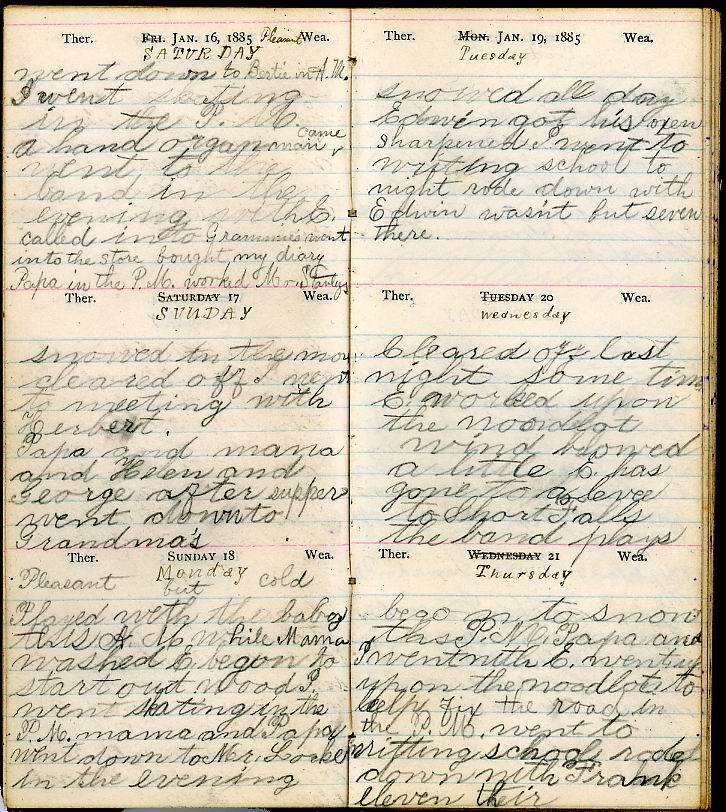 Ther. FRI. JAN. 16, 1885 Pleasant Wea.
SATURDAY
went down to Bertie in A.M.
I went skating
in the P. M.
came
a hand organ man
went to the
band in the
evening with E.
called into Grammies went
into the store bought my diary
Papa in the P.M. worked Mr. Stanleys
Ther. SATURDAY 17 Wea.
SUNDAY
snowed in the mor
cleared off I went
to meeting with
Herbert.
Papa and mama
and Helen and
George after supper
went downto
Grandma's
Ther. SUNDAY 18 Wea.
Monday
Pleasant but cold
Played with the baby
this A. M. while Mama
washed E begon to
start out wood I
went skating in the
P.M. mama and Papa
went down to Mr. Locke
in the evening
Ther. MON. JAN. 19, 1885 Wea.
Tuesday
snowed all day
Edwin got his oxen
sharpened I went to
writing school to
night rode down with
Edwin wasn't but seven
there.
Ther. TUESDAY 20 Wea.
Wednesday
Cleared off last
night some time
E. worked upon
the woodlot
wind blowed
a little E has
gone to a
to Short Falls
the band plays
Ther. WEDNESDAY 21 Wea.
Thursday
begon to snow
this P.M. Papa and
I went with E. went up
upon the woodlots to
help fix the road in
the P.M. went to
writting school rode
down with Frank
eleven their